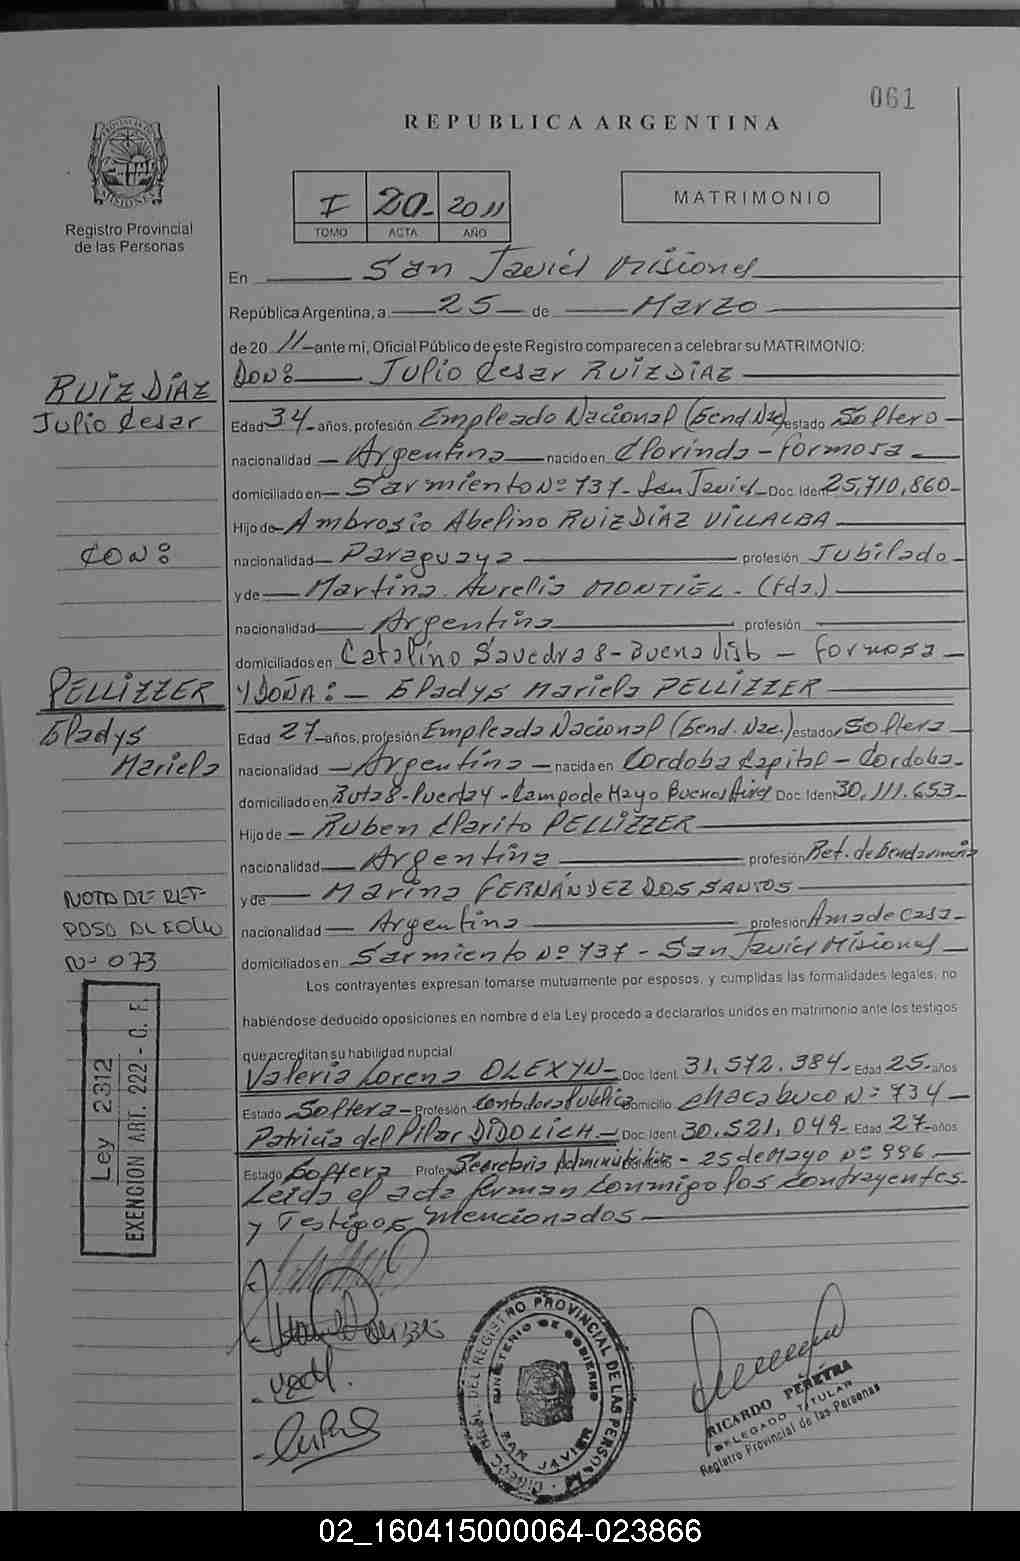 061
REPUBLICA ARGENTINA
PROVINCIA DE MISIONES
Registro Provincial
de las Personas
I 20- 2011
TOMO ACTA AÑO
MATRIMONIO
En San Javier Misiones
República Argentina, a 25 de Marzo
de 20 11 ante mi, Oficial Público de este Registro comparecen a celebrar su MATRIMONIO:
RUIZ DIAZ
Julio Cesar
CON:
PELLIZZER
Gladys
Mariela
DON: Julio Cesar RUIZ DIAZ
Edad 34 años, profesión Empleado Nacional (Gend Nac) estado Soltero
nacionalidad Argentina nacido en Clorinda - Formosa
domiciliado en Sarmiento Nº 737 - San Javier Doc. Ident 25,710,860
Hijo de Ambrosio Abelino RUIZ DIAZ VILLALBA
nacionalidad Paraguaya profesión Jubilado
y de Martina Aurelia MONTIEL - (fda.)
nacionalidad Argentina profesión
domiciliados en Catalino Savedra 8 - Buena Vista - Formosa
Y DOÑA: Gladys Mariela PELLIZZER
Edad 27 años, profesión Empleada Nacional (Gend. Nac.) estado Soltera
nacionalidad Argentina nacida en Cordoba Capital - Cordoba
domiciliado en Ruta 8 - Puerta 4 - Campo de Mayo Buenos Aires Doc. Ident 30,111.653
Hijo de Ruben Clarito PELLIZZER
nacionalidad Argentina profesión Ret. de Gendarmeria
y de Marina FERNÁNDEZ DOS SANTOS
nacionalidad Argentina profesión Ama de casa
domiciliados en Sarmiento Nº 737 - San Javier Misiones
NOTA DE REF-
FOLIO
N- 073
Ley 2312
EXENCION ART. 222 - C. F.
Los contrayentes expresan tomarse mutuamente por esposos, y cumplidas las formalidades legales, no
habiéndose deducido oposiciones en nombre d ela Ley procedo a declararlos unidos en matrimonio ante los testigos
que acreditan su habilidad nupcial
Valeria Lorena OLEXYN Doc. Ident. 31,572.384 Edad 25 años
Estado Soltera Profesión Contadora Publica Domicilio Chacabuco Nº 734
Patricia del Pilar DIDOLICH Doc. Ident 30.521,049 Edad 27 años
Estado Soltera Profe Secretaria Administrativa - 25 de Mayo Nº 996
Leida el acta firman conmigo los contrayentes
y Testigos mencionados
DEL REGISTRO PROVINCIAL DE LAS PERSONAS
MINISTERIO DE GOBIERNO
SAN JAVIER
RICARDO PEREYRA
DELEGADO TITULAR
Registro Provincial de las Personas
02_160415000064-023866